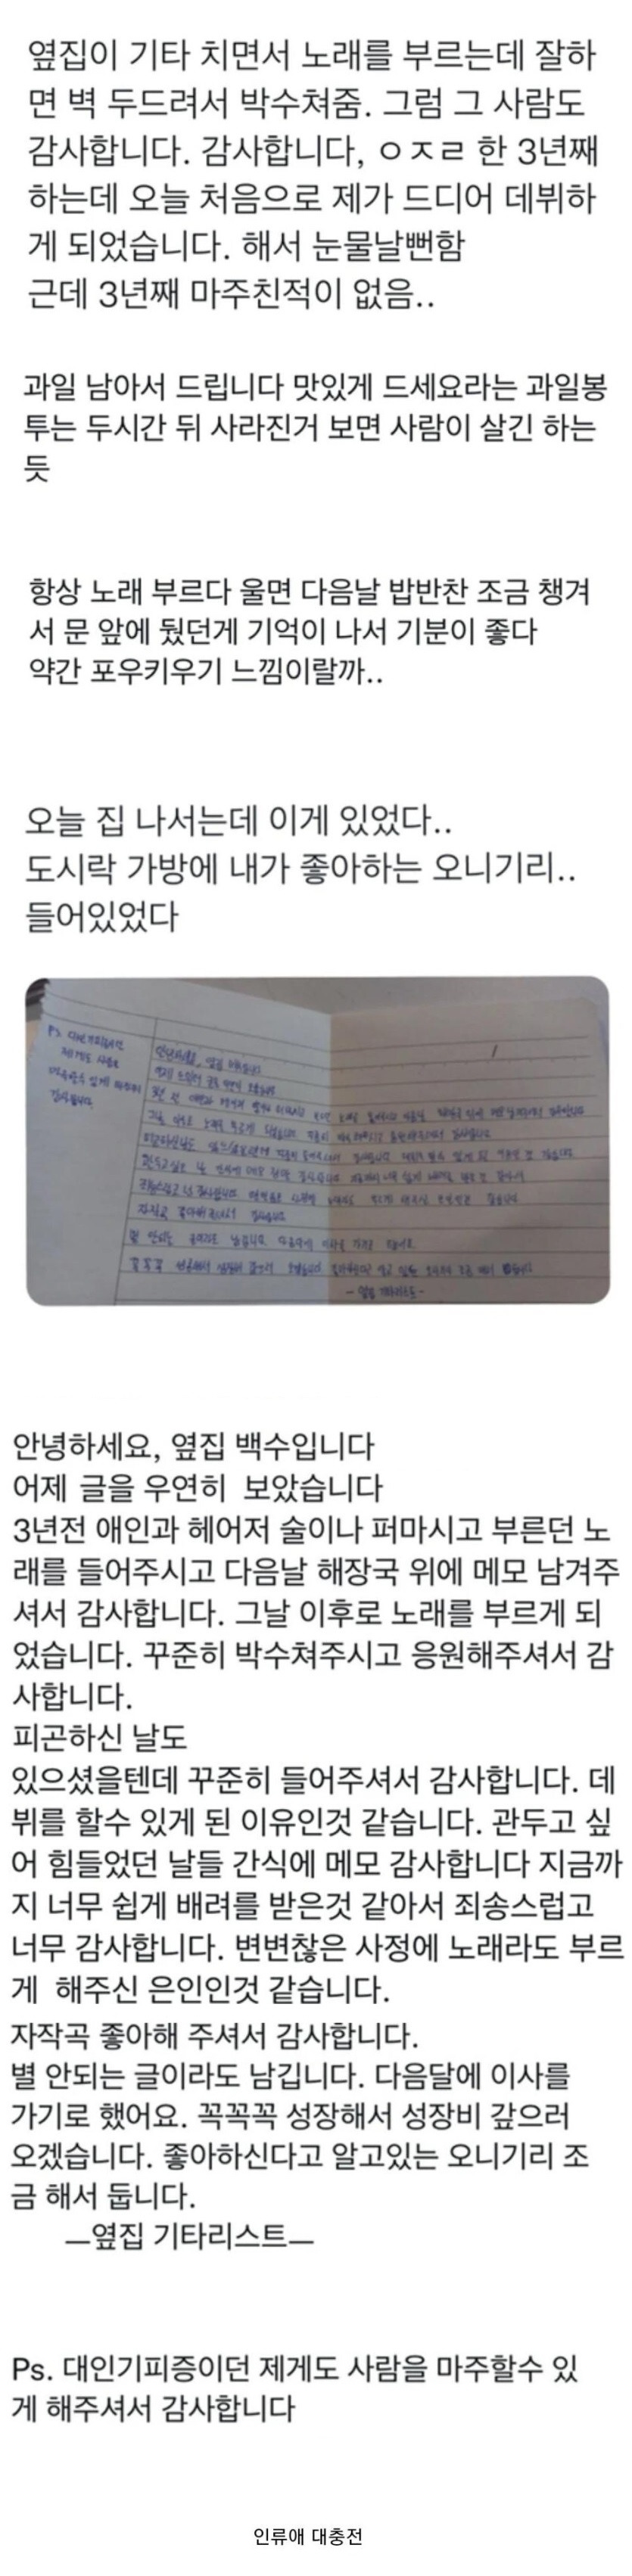 옆집이 기타 치면서 노래를 부르는데 잘하
면 벽 두드려서 박수쳐줌. 그럼 그 사람도
감사합니다. 감사합니다, ㅇㅈㄹ 한 3년째
하는데 오늘 처음으로 제가 드디어 데뷔하
게 되었습니다. 해서 눈물날뻔함
근데 3년째 마주친적이 없음..
과일 남아서 드립니다 맛있게 드세요라는 과일봉
투는 두시간 뒤 사라진거 보면 사람이 살긴 하는
듯
항상 노래 부르다 울면 다음날 밥반찬 조금 챙겨
서 문 앞에 뒀던게 기억이 나서 기분이 좋다
약간 포우키우기 느낌이랄까..
오늘 집 나서는데 이게 있었다..
도시락 가방에 내가 좋아하는 오니기리..
들어있었다
Ps. 대인기피증이던
제게도 사람을
마주할수 있게 해주셔서
감사합니다
안녕하세요, 옆집 백수입니다
어제 글을 우연히 보았습니다
자작곡 좋아해 주셔서 감사합니다
별 안되는 글이라도 남깁니다. 다음달에 이사를 가기로 했어요.
- 옆집 기타리스트 -
안녕하세요, 옆집 백수입니다
어제 글을 우연히 보았습니다
3년전 애인과 헤어저 술이나 퍼마시고 부른던 노
래를 들어주시고 다음날 해장국 위에 메모 남겨주
셔서 감사합니다. 그날 이후로 노래를 부르게 되
었습니다. 꾸준히 박수쳐주시고 응원해주셔서 감
사합니다.
피곤하신 날도
있으셨을텐데 꾸준히 들어주셔서 감사합니다. 데
뷔를 할수 있게 된 이유인것 같습니다. 관두고 싶
어 힘들었던 날들 간식에 메모 감사합니다 지금까
지 너무 쉽게 배려를 받은것 같아서 죄송스럽고
너무 감사합니다. 변변찮은 사정에 노래라도 부르
게 해주신 은인인것 같습니다.
자작곡 좋아해 주셔서 감사합니다.
별 안되는 글이라도 남깁니다. 다음달에 이사를
가기로 했어요. 꼭꼭꼭 성장해서 성장비 갚으러
오겠습니다. 좋아하신다고 알고있는 오니기리 조
금 해서 둡니다.
—옆집 기타리스트—
Ps. 대인기피증이던 제게도 사람을 마주할수 있
게 해주셔서 감사합니다
인류애 대충전